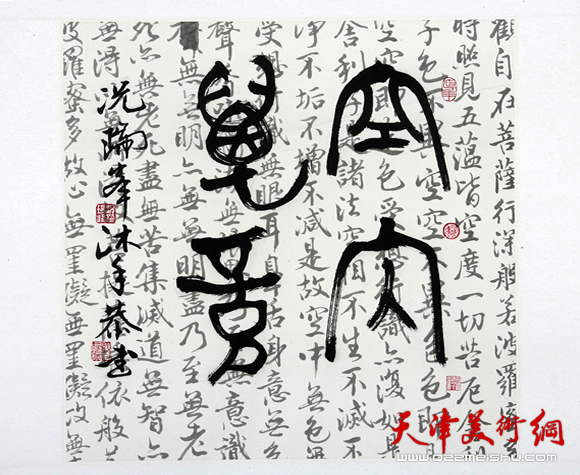 觀自在菩薩行深般若波羅蜜多
時照見五蘊皆空度一切苦厄舍利
子色不異空空不異色色即是
空空即是色受想行識亦復如是
舍利子是諸法空相不生不滅不
淨不垢不增不減是故空中無色無
受想行識無眼耳鼻舌身意無
聲無眼界乃至無意識
無無明亦無無明盡乃至無老
死亦無老死盡無苦集滅道無智亦
無得依般
波羅蜜多故心無罣礙無罣礙故無
空內
萬
冼瑞峯沐手恭書
天津美術網
www.022meishu.com